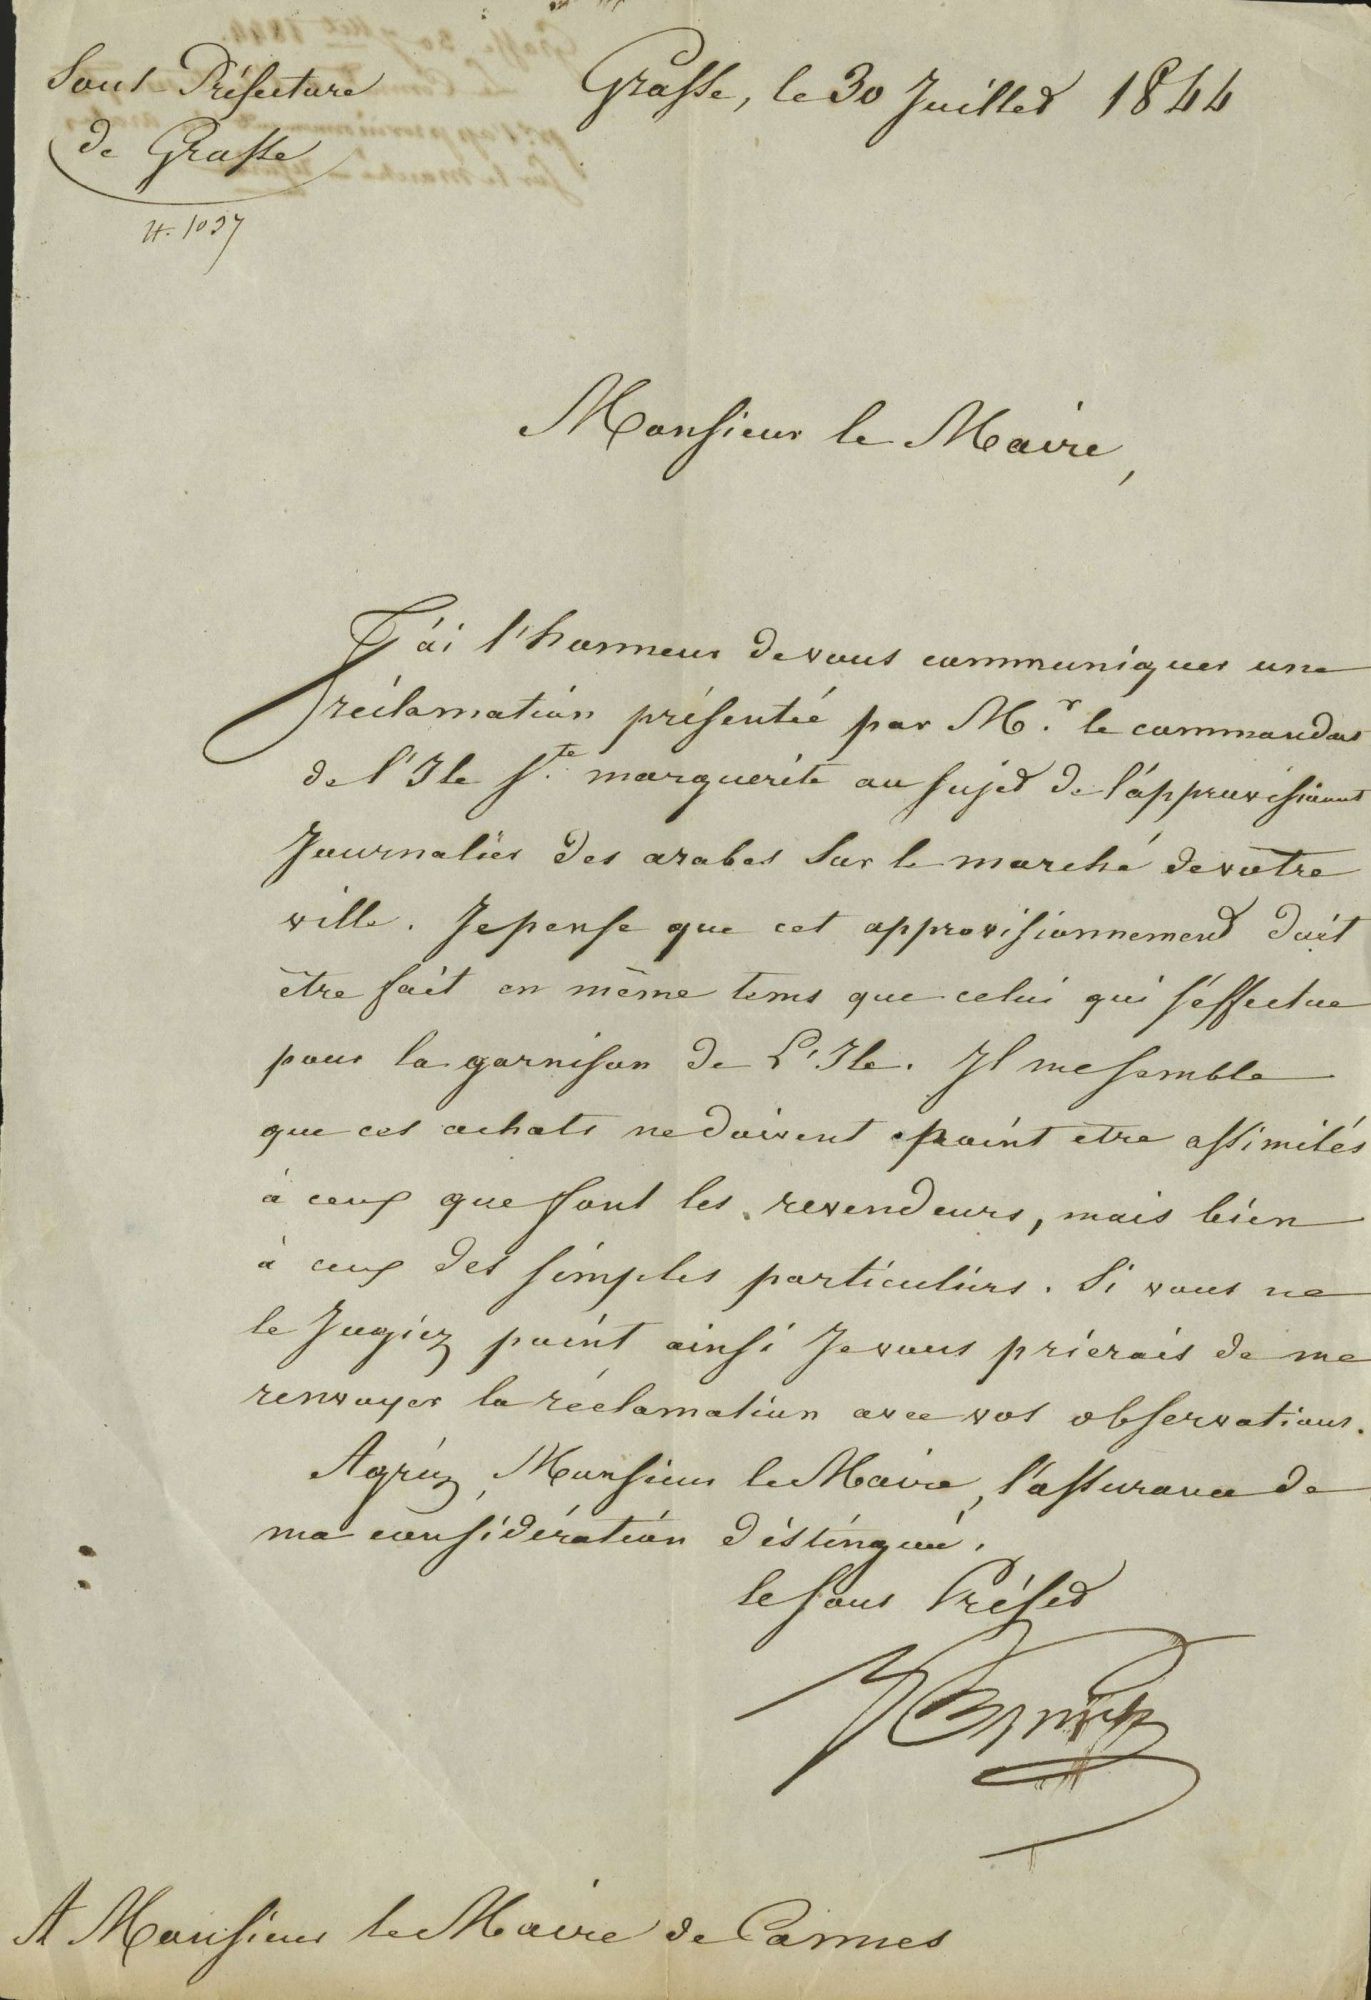 Sous Préfecture
de Grasse
N. 1097
Grasse, le 30 Juillet 1844
Monsieur le Maire,
J'ai l'honneur de vous communiquer une
réclamation présentée par M.r le commandant
de l'Ile S.te marguerite au sujet de l'approvisionnt
Journalier des arabes sur le marché de votre
ville. Je pense que cet approvisionnement doit
être fait en même tems que celui qui s'éffectue
pour la garnison de L'Ile. Il me semble
que ces achats ne doivent point etre assimilés
à ceux que font les revendeurs, mais bien
à ceux des simples particuliers. Si vous ne
le Jugiez point ainsi Je vous prierais de me
renvoyer la réclamation avec vos observations.
Agréez, Monsieur le Maire, l'assurance de
ma considération distinguée.
le sous Préfet
A Monsieur le Maire de Cannes